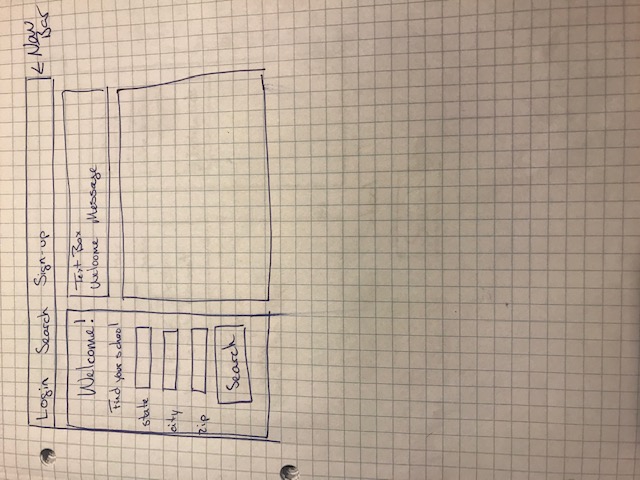 Login Search Sign-up
← Nav Bar
Welcome!
Find your school
state
city
zip
Search
Text Box
Welcome Message